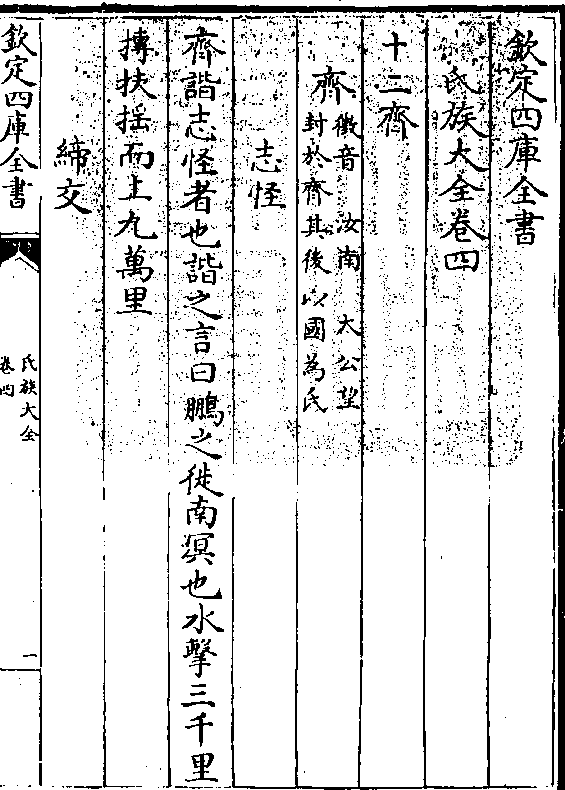 欽定四庫全書
氏族大全卷四
十二齊
齊 徵音 汝南 大公望
封於齊其後以國為氏
志怪
齊諧志怪者也諧之言曰鵬之徙南溟也水擊三千里
摶扶揺而上九萬里
締交
欽定四庫全書
氏族大全
卷四
一